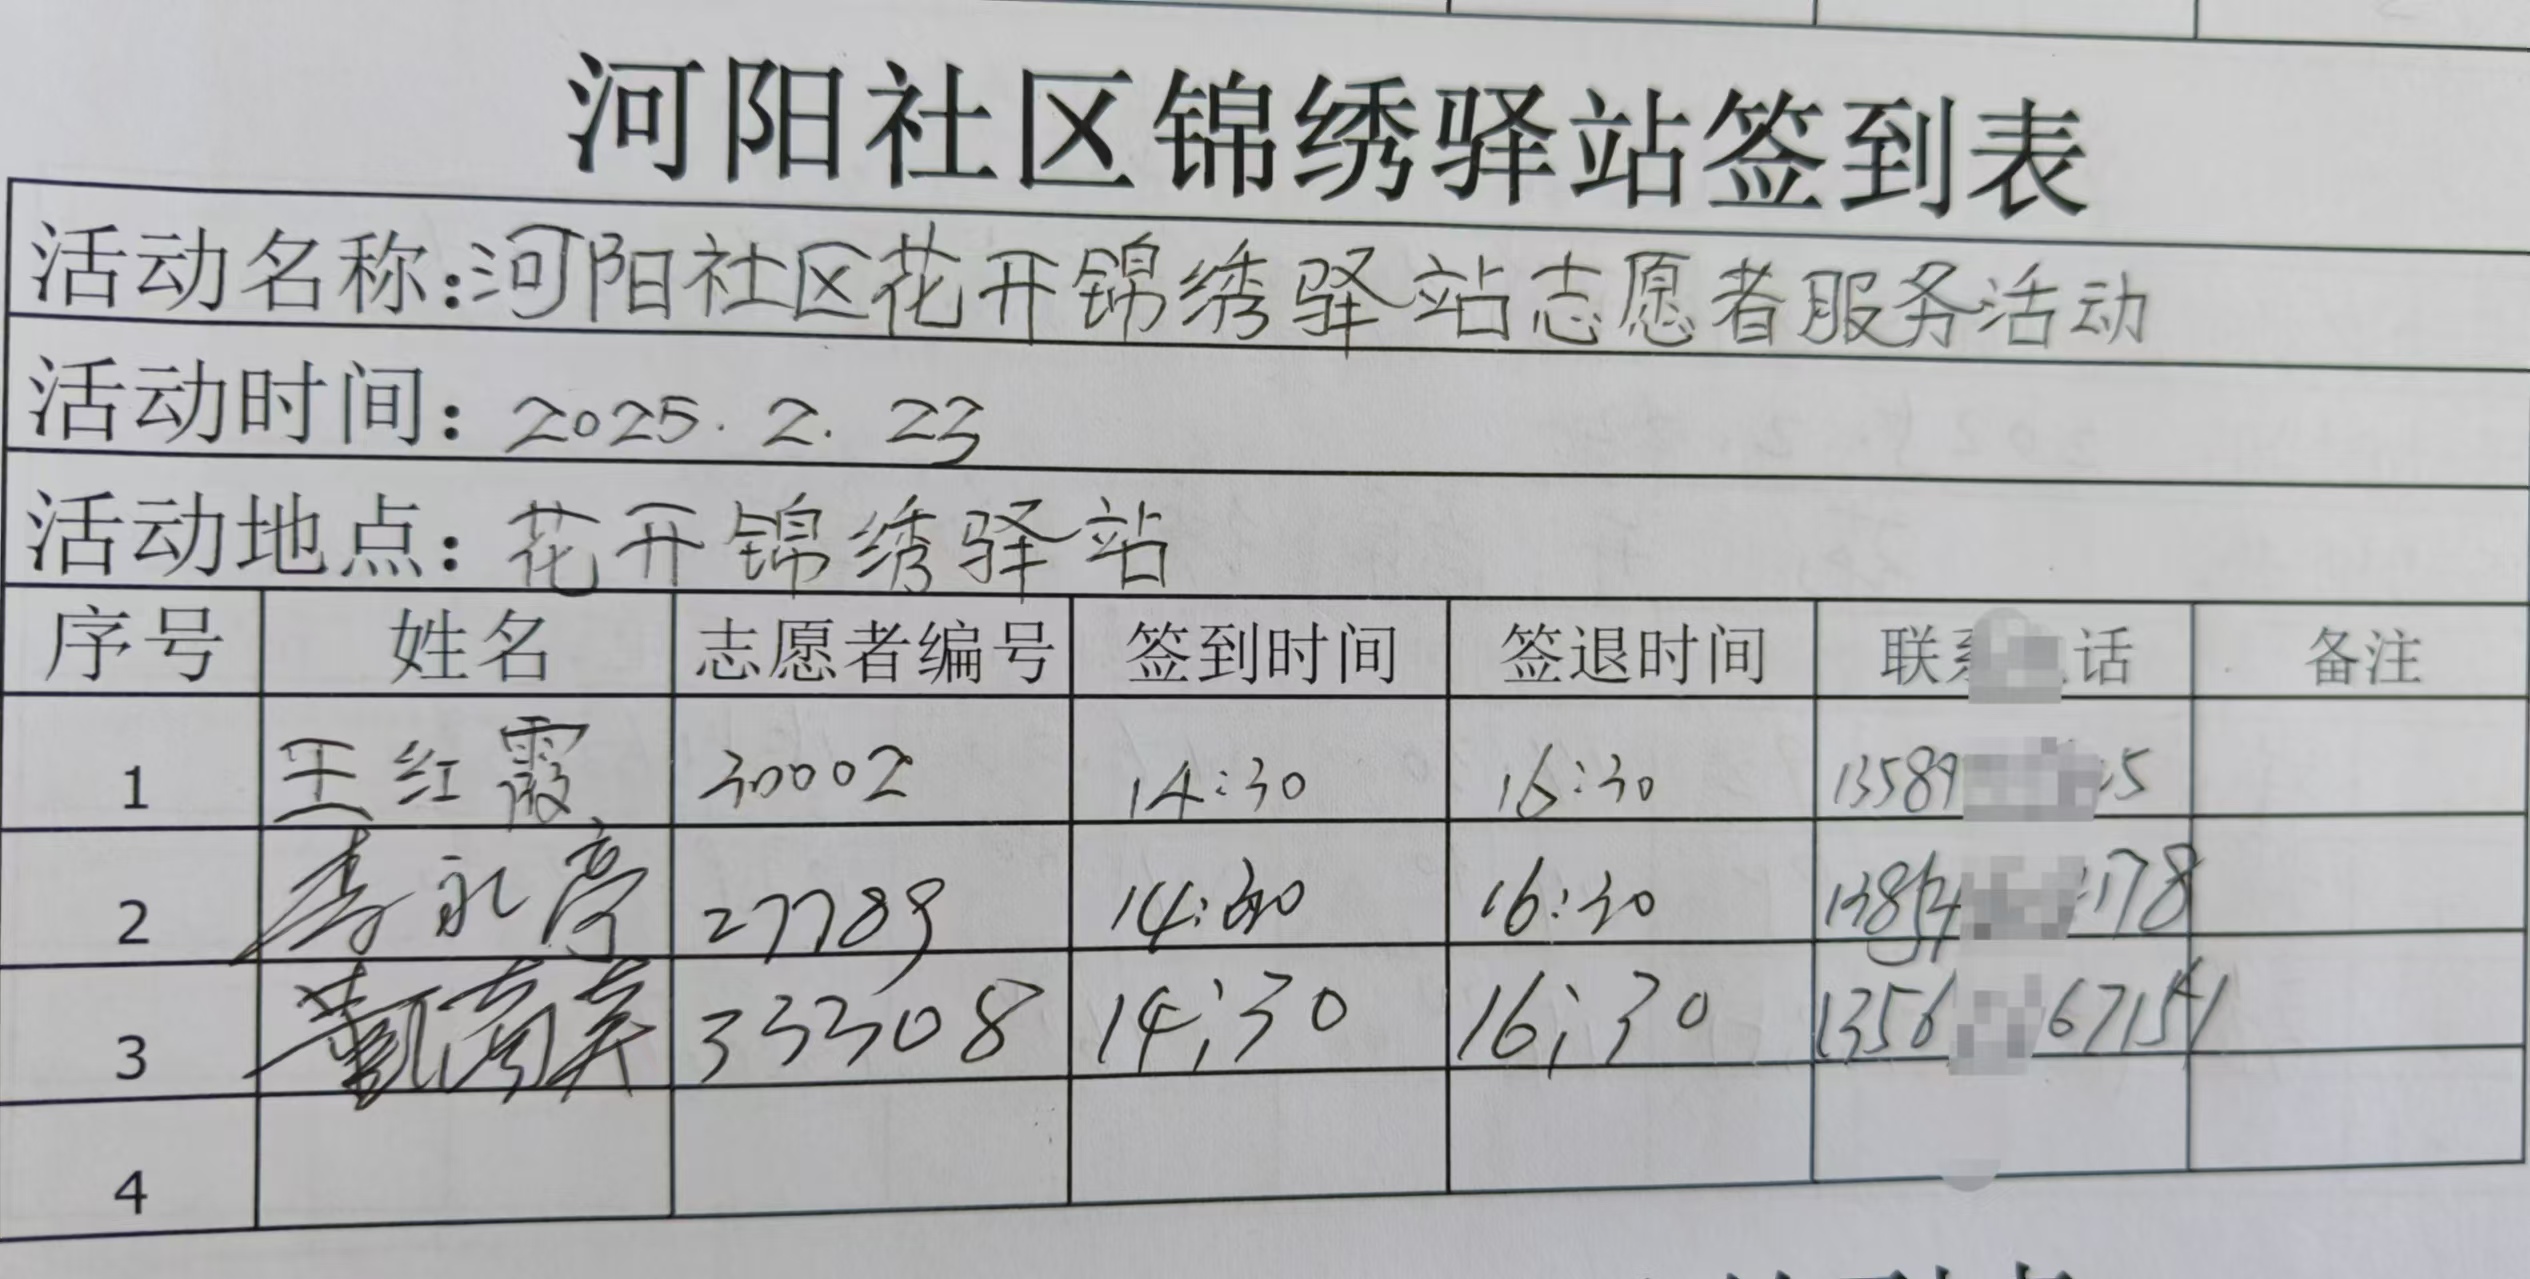 河阳社区锦绣驿站签到表
活动名称:河阳社区花开锦绣驿站志愿者服务活动
活动时间: 2025.2.23
活动地点: 花开锦绣驿站
序号 姓名 志愿者编号 签到时间 签退时间 联系 话 备注
1 王红霞 30002 14:30 16:30 13589 5
2 李永亭 27789 14:30 16:30 13854 178
3 33308 14:30 16:30 1356 67151
4